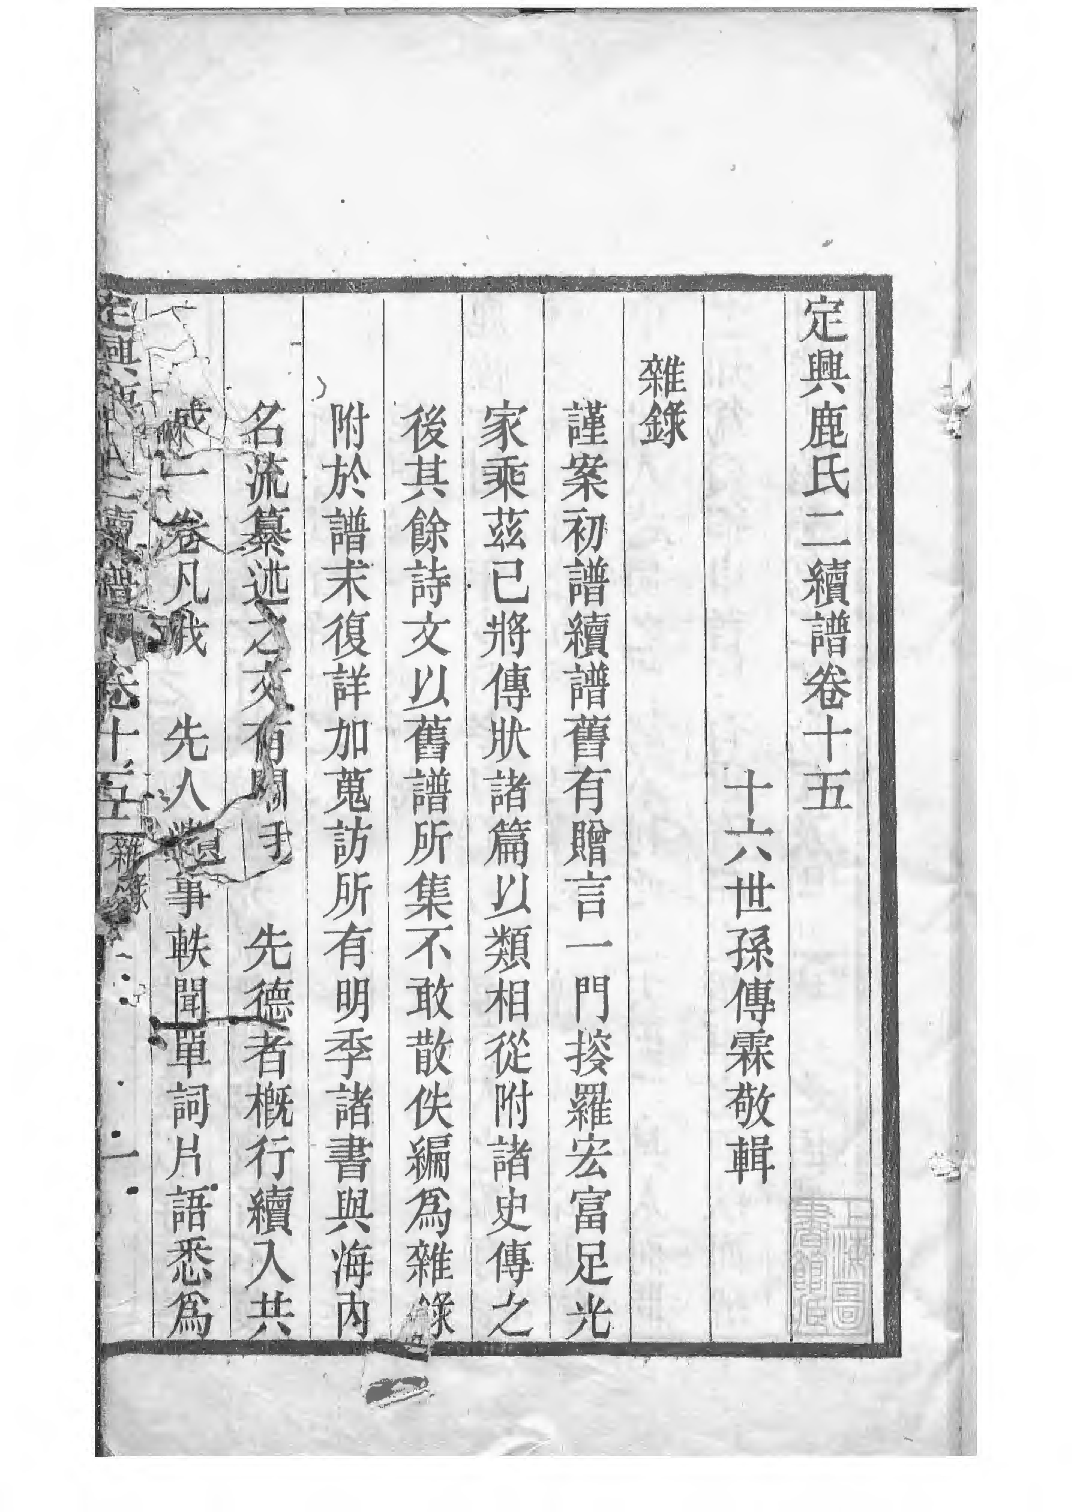 定興鹿氏二續譜卷十五
十六世孫傳霖敬輯
雜錄
謹案初譜續譜舊有贈言一門搜羅宏富足光
家乘茲已將傳狀諸篇以類相從附諸史傳之
後其餘詩文以舊譜所集不敢散佚編爲雜錄
附於譜末復詳加蒐訪所有明季諸書與海內
名流纂述之文有關我　先德者槪行續入共
成一卷凡我　先人遺事軼聞單詞片語悉爲
定興鹿氏二續譜　卷十五　雜錄　一
上海圖書館藏